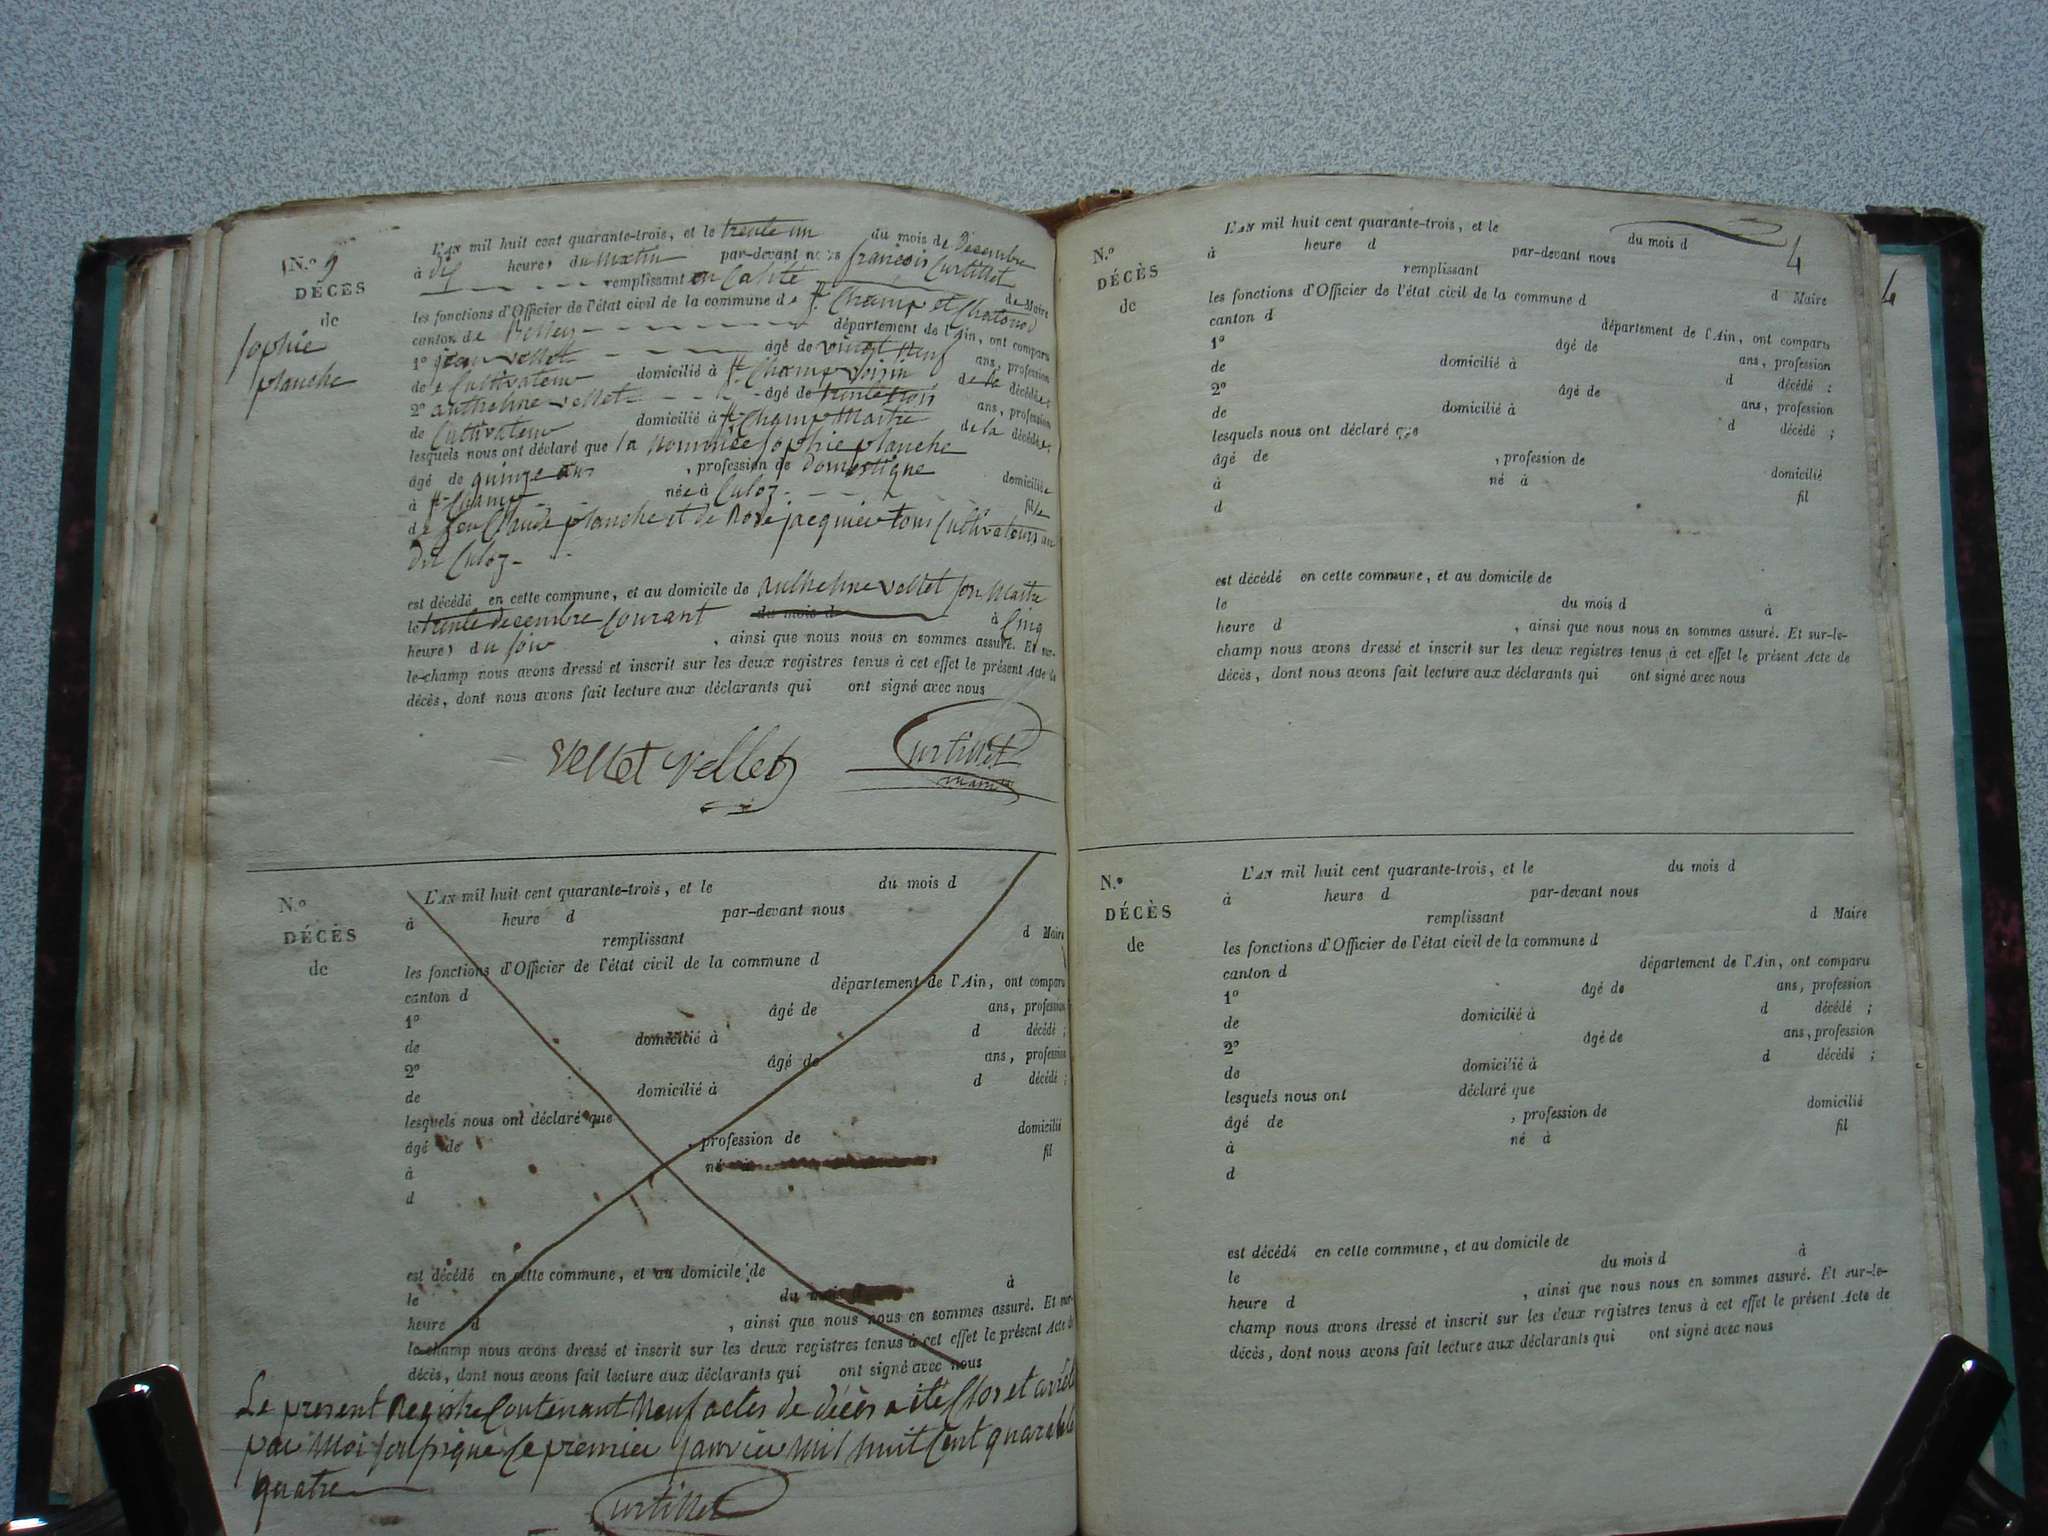 N.º 9
DÉCÈS
de
Sophie
planche
L'AN mil huit cent quarante-trois, et le trente un du mois de Decembre
à dix heures du Matin par-devant nous françois Curtillet
remplissant en Calité de Maire
les fonctions d'Officier de l'état civil de la commune de St. Champ et Chatonod
canton de Belley département de l'Ain, ont comparu
1º jean vellet âgé de vingt neuf ans, profession
de Cultivateur domicilié à St. Champ voisin de la décédée;
2º anthelme vellet âgé de trente trois ans, profession
de Cultivateur domicilié à St. Champ Maitre de la décédée;
lesquels nous ont déclaré que la nommée Sophie planche
âgé de quinze ans, profession de domestique domiciliée
à St. Champ née à Culoz fille
de feu Claude planche et de Rose jacquier tous Cultivateurs au
dit Culoz
est décédé en cette commune, et au domicile de Anthelme vellet son Maitre
le trente decembre Courant du mois d à Cinq
heures du soir, ainsi que nous nous en sommes assuré. Et sur-
le-champ nous avons dressé et inscrit sur les deux registres tenus à cet effet le présent Acte de
décès, dont nous avons fait lecture aux déclarants qui ont signé avec nous
vellet vellet Curtillet
maire
N.º
DÉCÈS
de
L'AN mil huit cent quarante-trois, et le du mois d
à heure d par-devant nous
remplissant d Maire
les fonctions d'Officier de l'état civil de la commune d
canton d département de l'Ain, ont comparu
1º âgé de ans, profession
de domicilié à d décédé ;
2º âgé de ans, profession
de domicilié à d décédé ;
lesquels nous ont déclaré que
âgé de , profession de domicilié
à né à fil
d
est décédé en cette commune, et au domicile de
le du mois d à
heure d , ainsi que nous nous en sommes assuré. Et sur-
le-champ nous avons dressé et inscrit sur les deux registres tenus à cet effet le présent Acte de
décès, dont nous avons fait lecture aux déclarants qui ont signé avec nous
Le present Registre Contenant Neuf actes de décès a été Clos et arrété
par Moi soussigné Le premier janvier Mil huit Cent quarante
quatre
Curtillet
4
4
N.º
DÉCÈS
de
L'AN mil huit cent quarante-trois, et le du mois d
à heure d par-devant nous
remplissant d Maire
les fonctions d'Officier de l'état civil de la commune d
canton d département de l'Ain, ont comparu
1º âgé de ans, profession
de domicilié à d décédé ;
2º âgé de ans, profession
de domicilié à d décédé ;
lesquels nous ont déclaré que
âgé de , profession de domicilié
à né à fil
d
est décédé en cette commune, et au domicile de
le du mois d à
heure d , ainsi que nous nous en sommes assuré. Et sur-le-
champ nous avons dressé et inscrit sur les deux registres tenus à cet effet le présent Acte de
décès, dont nous avons fait lecture aux déclarants qui ont signé avec nous
N.º
DÉCÈS
de
L'AN mil huit cent quarante-trois, et le du mois d
à heure d par-devant nous
remplissant d Maire
les fonctions d'Officier de l'état civil de la commune d
canton d département de l'Ain, ont comparu
1º âgé de ans, profession
de domicilié à d décédé ;
2º âgé de ans, profession
de domicilié à d décédé ;
lesquels nous ont déclaré que
âgé de , profession de domicilié
à né à fil
d
est décédé en cette commune, et au domicile de
le du mois d à
heure d , ainsi que nous nous en sommes assuré. Et sur-le-
champ nous avons dressé et inscrit sur les deux registres tenus à cet effet le présent Acte de
décès, dont nous avons fait lecture aux déclarants qui ont signé avec nous